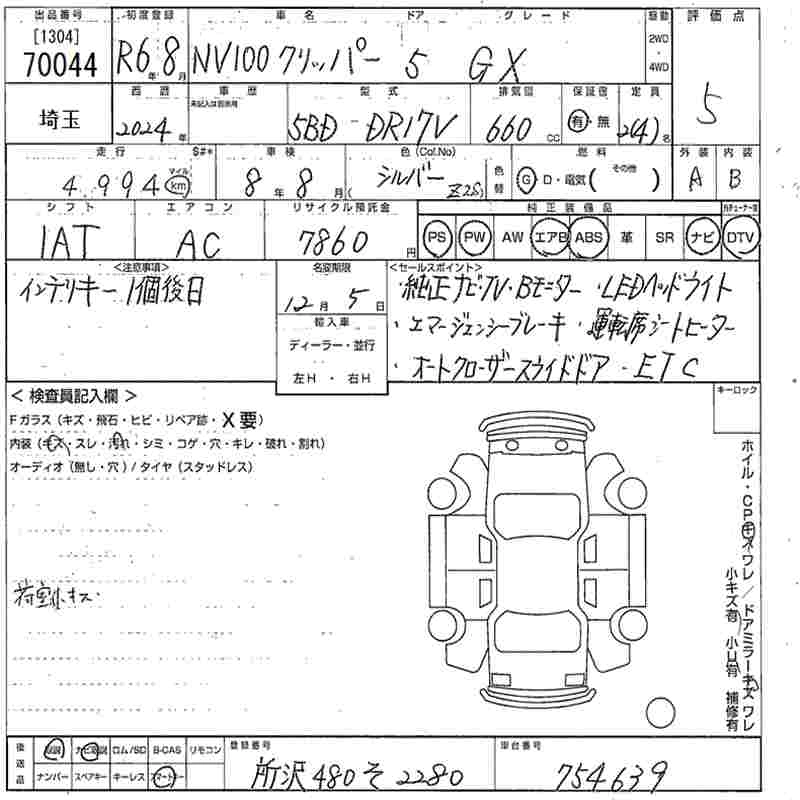 出品番号 初度登録 車名 ドア グレード 駆動 評価点
[1304]
70044 R6年8月 NV100クリッパー 5 GX 2WD・4WD 5
埼玉
西暦 車歴 型式 排気量 保証書 定員
未記入は自家用
2024年 5BD-DR17V 660cc 有・無 2(4)名
走行 S#* 車検 色(Col.No) 燃料 外装 内装
4,994 マイル km 8年8月 シルバー Z2S 色替 G D・電気( その他 ) A B
シフト エアコン リサイクル預託金 純正装備品
IAT AC 7860円 PS PW AW エアB ABS 革 SR ナビ DTV
<注意事項> 名変期限 <セールスポイント>
インテリキー1個後日 12月5日
・純正ナビ・TV・Bモニター・LEDヘッドライト
・エマージェンシーブレーキ・運転席シートヒーター
・オートクローザースライドドア・ETC
輸入車
ディーラー・並行
左H・右H
<検査員記入欄> キーロック
Fガラス(キズ・飛石・ヒビ・リペア跡・X要)
内装(キズ・スレ・汚れ・シミ・コゲ・穴・キレ・破れ・割れ)
オーディオ(無し・穴)/タイヤ(スタッドレス)
荷室小キズ
ホイル・CPキズワレ/ドアミラーキズワレ
小キズ有 小U有 補修有
後送品 ナビ取説 ロム/SD B-CAS リモコン 登録番号 車台番号
ナンバー スペアキー キーレス スマートキー
所沢480そ2280 754639